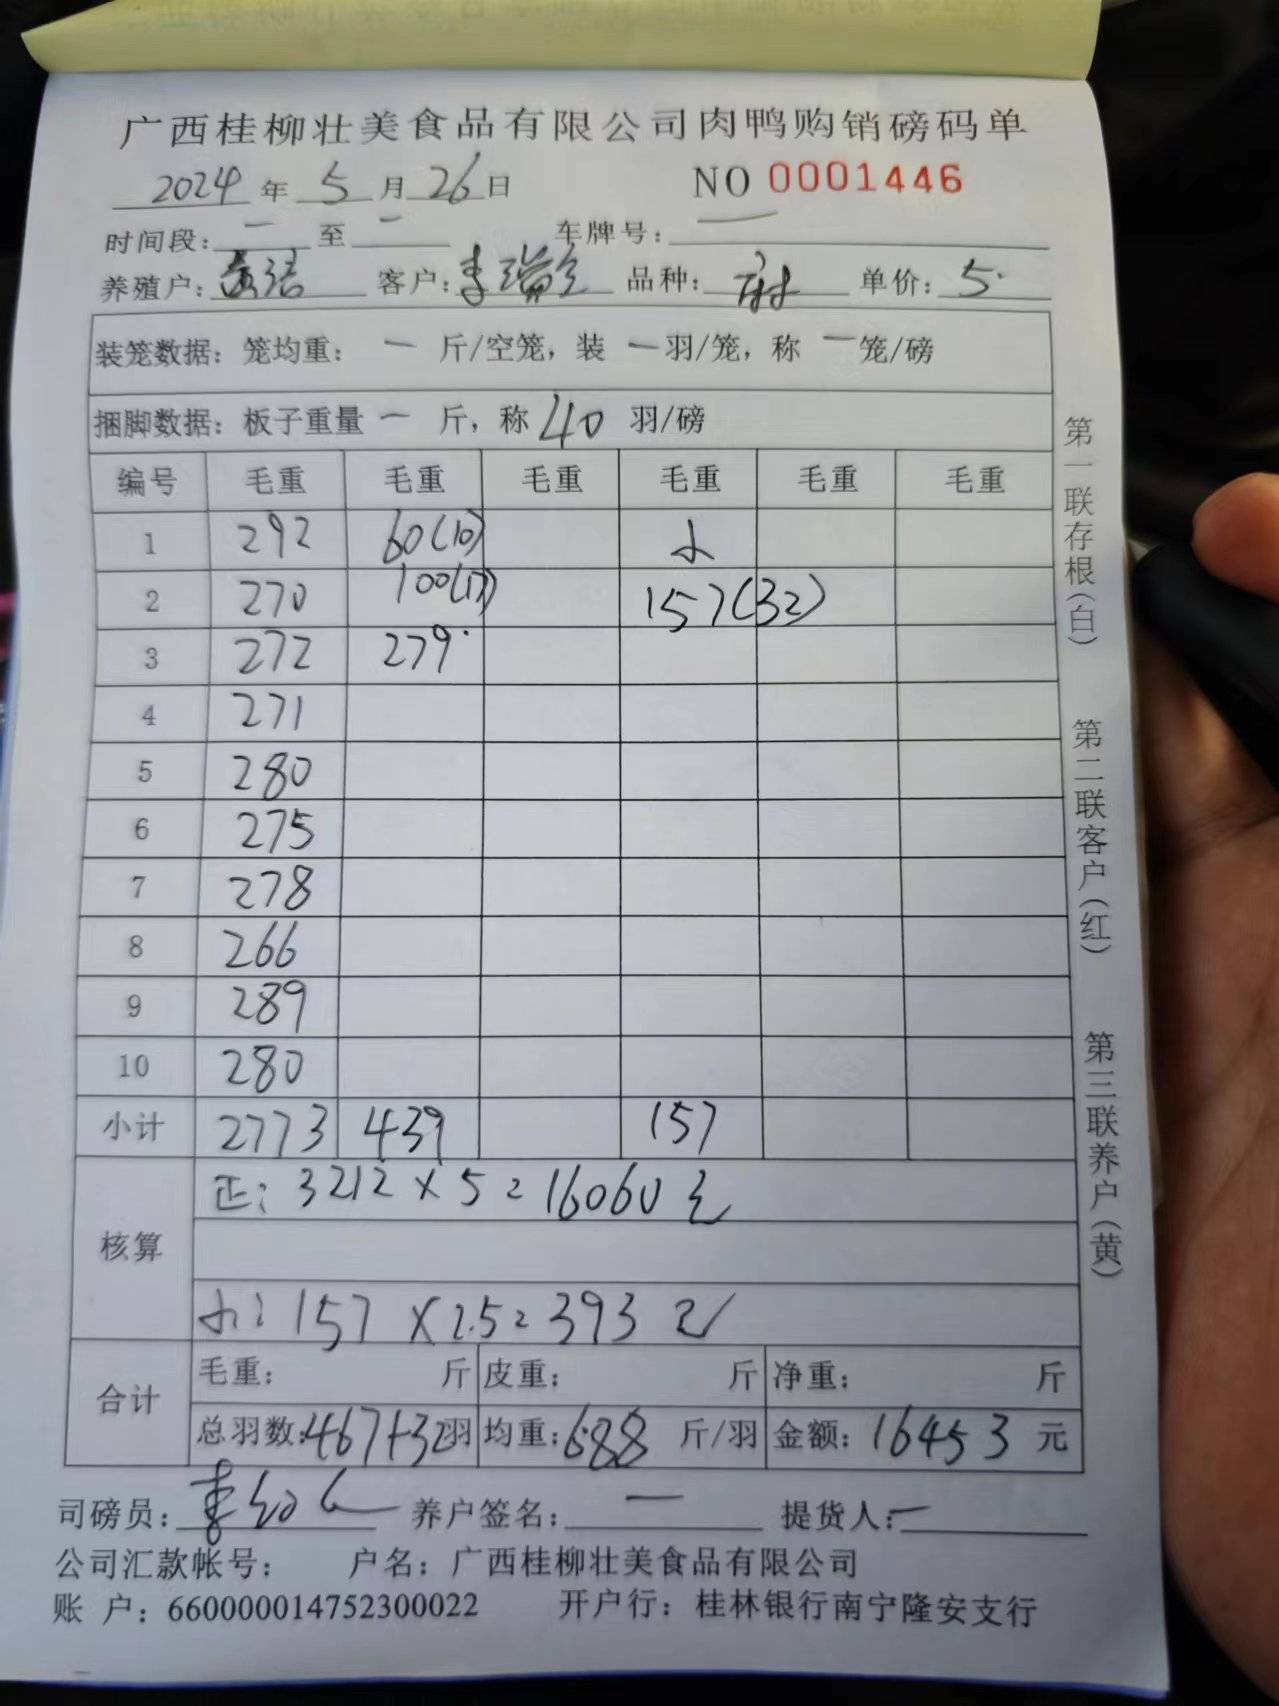 广西桂柳壮美食品有限公司肉鸭购销磅码单
2024 年 5 月 26 日 NO 0001446
时间段: 一 至 一 车牌号: 一
养殖户: 客户: 李瑞 品种: 单价: 5.
装笼数据: 笼均重: 一 斤/空笼, 装 一 羽/笼, 称 一 笼/磅
捆脚数据: 板子重量 一 斤, 称 40 羽/磅
编号 毛重 毛重 毛重 毛重 毛重 毛重
1 292 60(10) 小
2 270 100(17) 157(32)
3 272 279.
4 271
5 280
6 275
7 278
8 266
9 289
10 280
小计 2773 439 157
核算
正: 3212 × 5 = 16060 元
小: 157 × 2.5 = 393 元
合计
毛重: 斤 皮重: 斤 净重: 斤
总羽数: 467+32 羽 均重: 6.88 斤/羽 金额: 16453 元
司磅员: 李 养户签名: 一 提货人: 一
公司汇款帐号: 户名: 广西桂柳壮美食品有限公司
账 户: 660000014752300022 开户行: 桂林银行南宁隆安支行
第一联存根(白) 第二联客户(红) 第三联养户(黄)